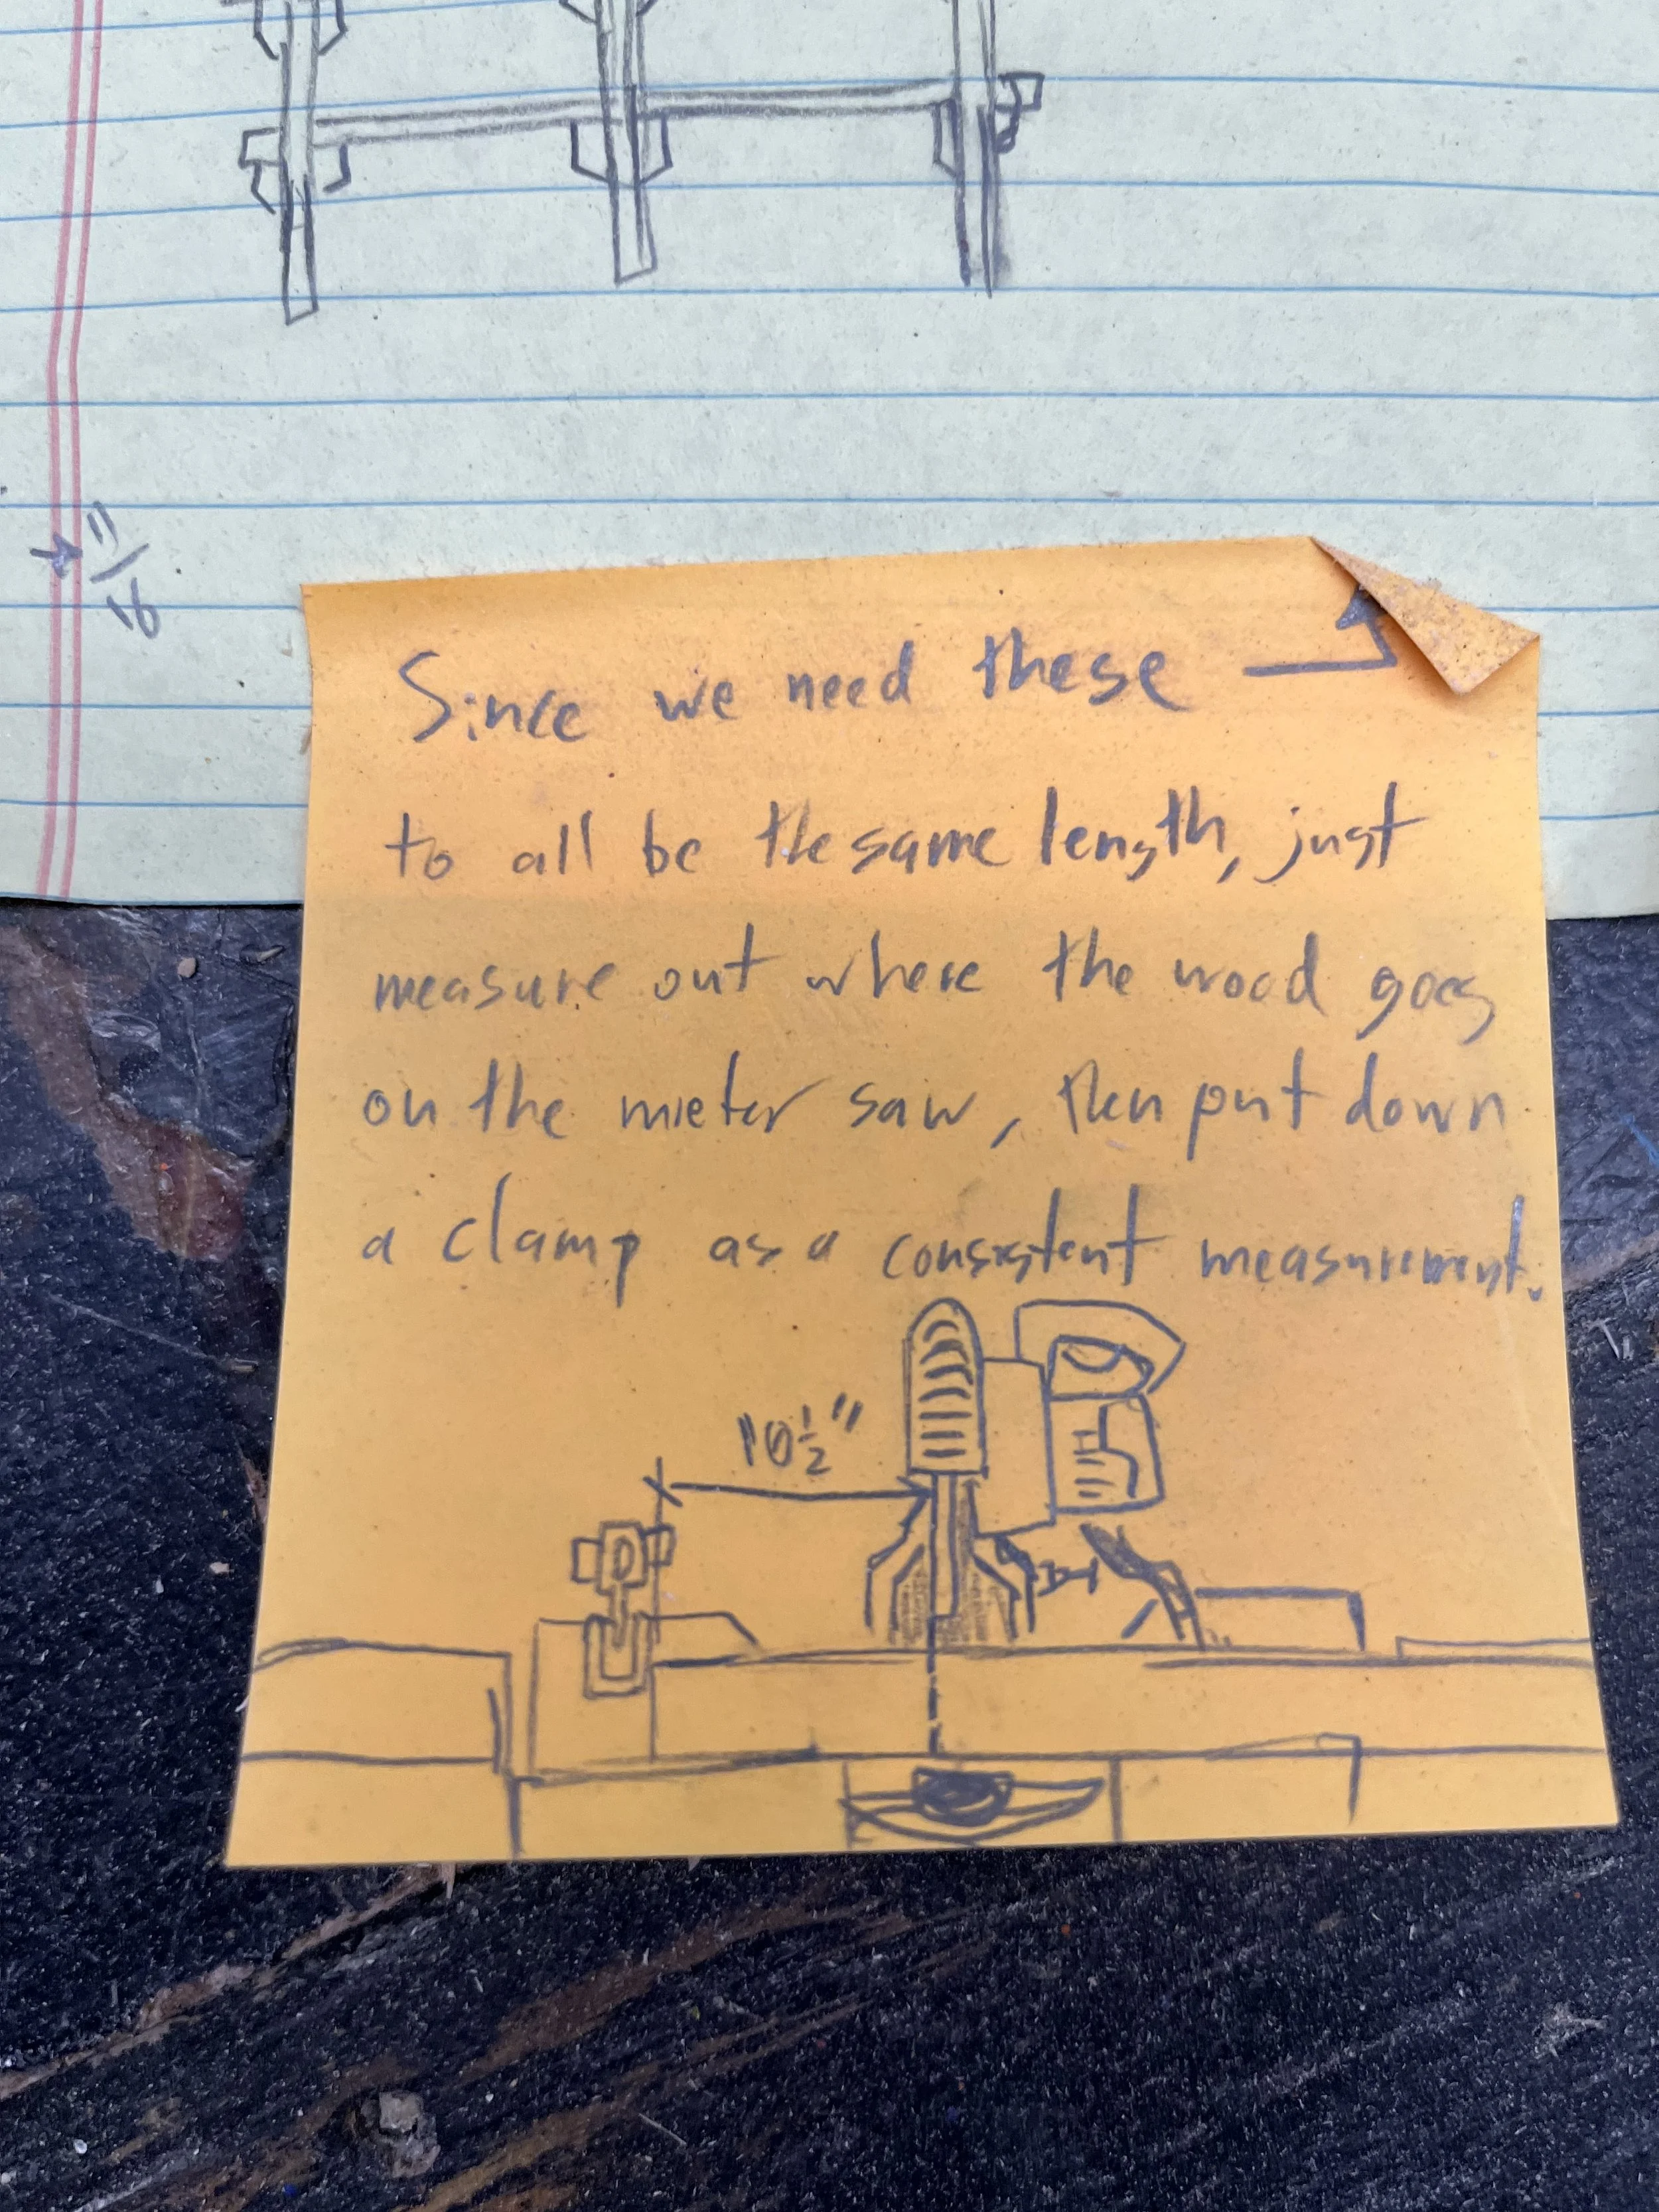 11/16
Since we need these
to all be the same length, just
measure out where the wood goes
on the mieter saw, then put down
a clamp as a consistent measurement.
"10 1/2"